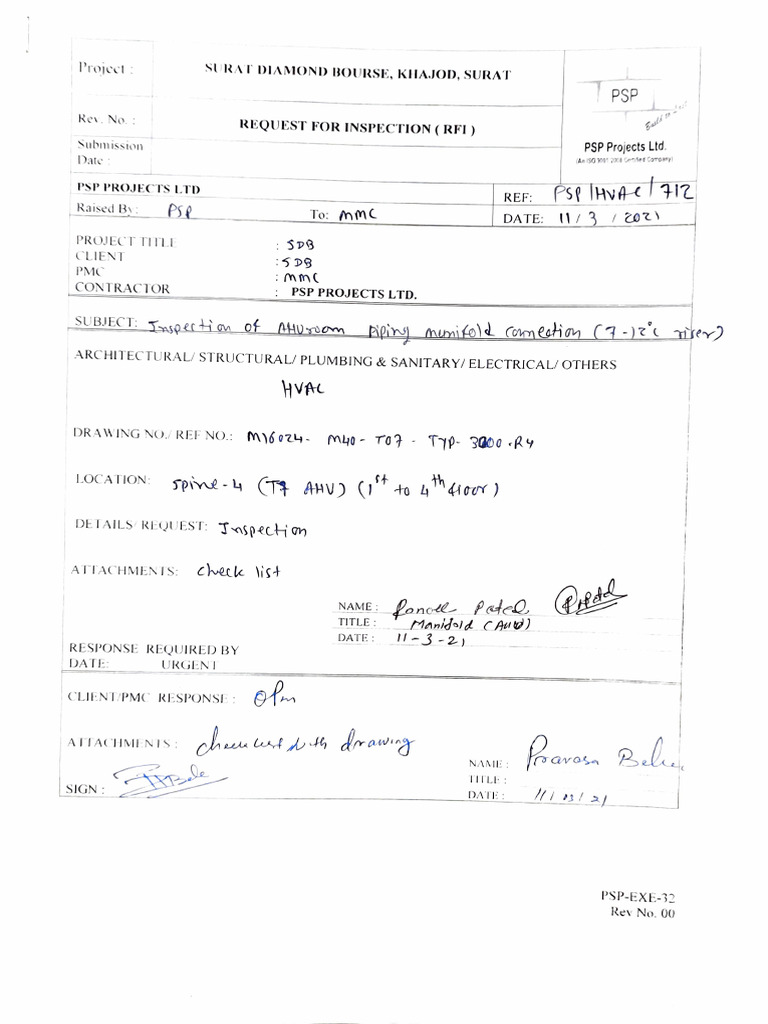 Project : SURAT DIAMOND BOURSE, KHAJOD, SURAT
PSP
Build to Last
Rev. No. : REQUEST FOR INSPECTION ( RFI )
Submission
Date :
PSP Projects Ltd.
(An ISO 9001:2008 Certified Company)
PSP PROJECTS LTD REF: PSP/HVAC/712
Raised By: PSP To: MMC DATE: 11/3/2021
PROJECT TITLE : SDB
CLIENT : SDB
PMC : MMC
CONTRACTOR : PSP PROJECTS LTD.
SUBJECT: Inspection of AHU room piping manifold connection (7-12°c riser)
ARCHITECTURAL/ STRUCTURAL/ PLUMBING & SANITARY/ ELECTRICAL/ OTHERS
HVAC
DRAWING NO./ REF NO.: M16024- M40- T07 - TYP- 3000.R4
LOCATION: Spine-4 (T7 AHU) (1st to 4th floor)
DETAILS/ REQUEST: Inspection
ATTACHMENTS: check list
NAME : Patel
TITLE : Manifold (AHU)
DATE : 11-3-21
RESPONSE REQUIRED BY
DATE: URGENT
CLIENT/PMC RESPONSE :
ATTACHMENTS : with drawing
NAME :
TITLE :
SIGN :
DATE : 11/03/21
PSP-EXE-32
Rev No. 00